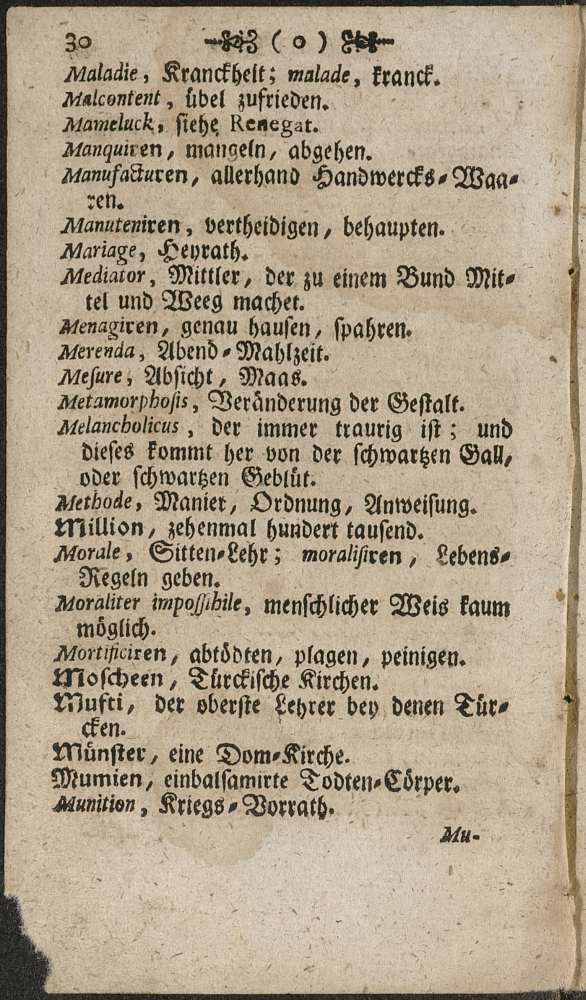 30 ( o )
Maladie, Kranckheit; malade, kranck.
Malcontent, übel zufrieden.
Mameluck, siehe Renegat.
Manquiren, mangeln, abgehen.
Manufacturen, allerhand Handwercks-Waa-
ren.
Manuteniren, vertheidigen, behaupten.
Mariage, Heyrath.
Mediator, Mittler, der zu einem Bund Mit-
tel und Weeg machet.
Menagiren, genau hausen, spahren.
Merenda, Abend-Mahlzeit.
Mesure, Absicht, Maas.
Metamorphosis, Veränderung der Gestalt.
Melancholicus, der immer traurig ist; und
dieses kommt her von der schwartzen Gall,
oder schwartzen Geblüt.
Methode, Manier, Ordnung, Anweisung.
Million, zehenmal hundert tausend.
Morale, Sitten-Lehr; moralisiren, Lebens-
Regeln geben.
Moraliter impossibile, menschlicher Weis kaum
möglich.
Mortificiren, abtödten, plagen, peinigen.
Moscheen, Türckische Kirchen.
Mufti, der oberste Lehrer bey denen Tür-
cken.
Münster, eine Dom-Kirche.
Mumien, einbalsamirte Todten-Cörper.
Munition, Kriegs-Vorrath.
Mu-